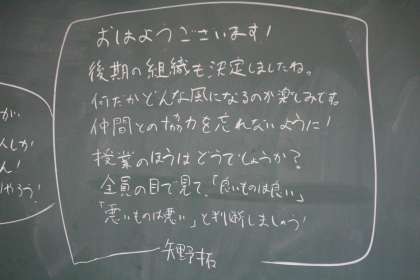 おはようございます!
後期の組織も決定しましたね。
何だかどんな風になるのか楽しみです。
仲間との協力を忘れないように!
授業のほうはどうでしょうか?
全員の目で見て、「良いものは良い」
「悪いものは悪い」と判断しましょう!
矢野拓
が
んしか
ん!
やろう!